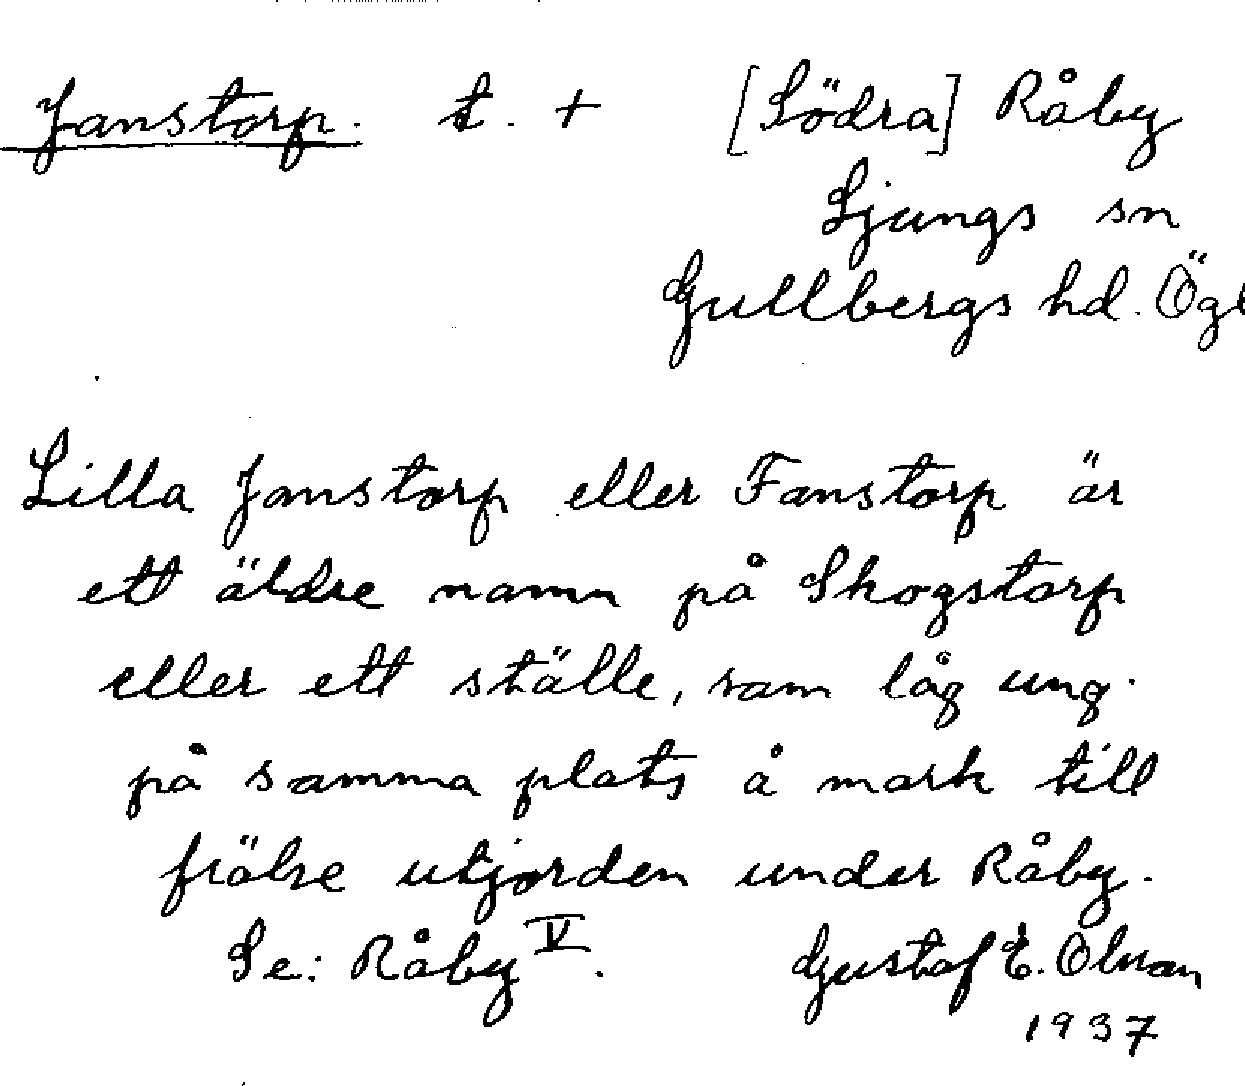 Janstorp. t. + [Södra] Råby
Ljungs sn
Gullbergs hd. Ögl
Lilla Janstorp eller Fanstorp är
ett äldre namn på Skogstorp
eller ett ställe, som låg ung.
på samma plats å mark till
frälse utjorden under Råby.
Se: Råby V. Gustaf E. Olman
1937